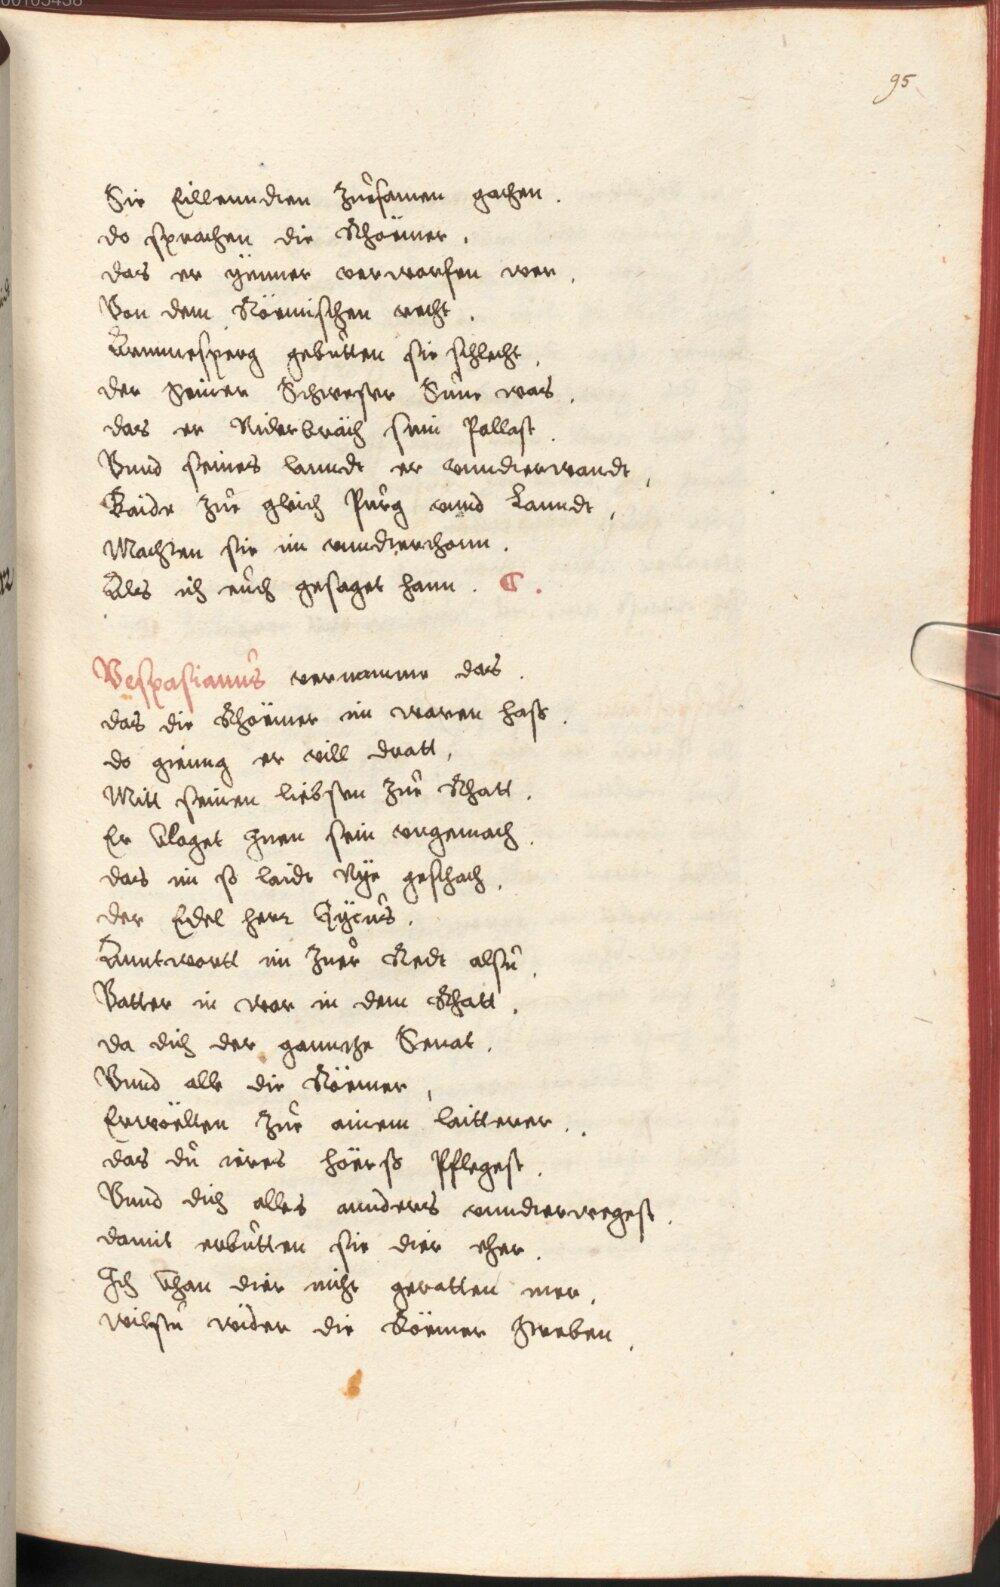 95
Sie Eillenndien zuesamen gachen.
do sprachen die Rhöemer.
das er ymmer verworfen wer.
Von dem Röemischen recht.
gebütten sie schlecht.
der seiner Schwester Sune was.
das er Niderbräch sein Pallast.
Vnnd seines lanndt er vnndierwandt,
Baide zue gleich Pürg vnnd Lanndt,
Machten sie im vnndierthonn.
Als ich euch gesaget hann.
Vespasianus vernamme das.
das die Rhöemer im waren hass.
do gieng er vill dratt,
Mitt seinen liebsten zue Rhatt.
Er klaget jnen sein vngemach.
das im so laide Nye geschach.
der Edel herr Tytus.
Anntwortt im zuer Redt alsu.
Vatter in war in dem Rhatt.
da dich der ganntze Senat.
Vnnd alle die Röemer,
Erwöelten zue ainem laitterer.
das du ieres höerss Pflegest.
Vnnd dich alles annders vnndierwegest.
damit erbütten sie dier eher.
Ich khan dier nicht geratten mer.
wilstu wider die Röemer streben.